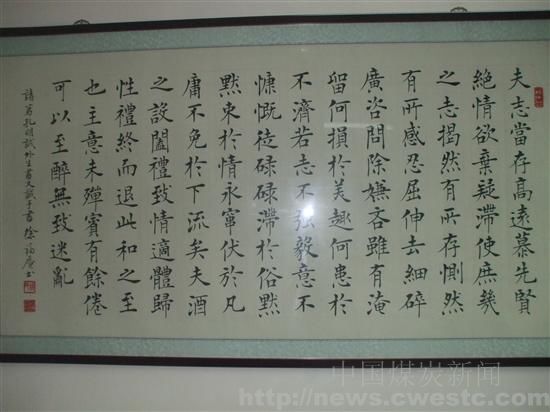 夫志當存高遠慕先賢
絕情欲棄疑滯使庶幾
之志揭然有所存惻然
有所感忍屈伸去細碎
廣咨問除嫌吝雖有淹
留何損於美趣何患於
不濟若志不强毅意不
慷慨徒碌碌滯於俗默
默束於情永竄伏於凡
庸不免於下流矣夫酒
之設闔禮致情適體歸
性禮終而退此和之至
也主意未殫賓有餘倦
可以至醉無致迷亂
諸葛孔明誡外生書又誡子書 徐
中国煤炭新闻
http://news.cwestc.com